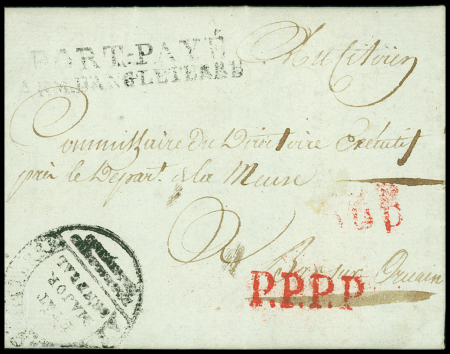 PORT-PAYÉ
ARM. D'ANGLETERRE
Au Citoien
Commissaire du Directoire Exécutif
près le Départ. de la Meuse
A Bar sur Ornain
P.P.P.P
ETAT
MAJOR
GENERAL